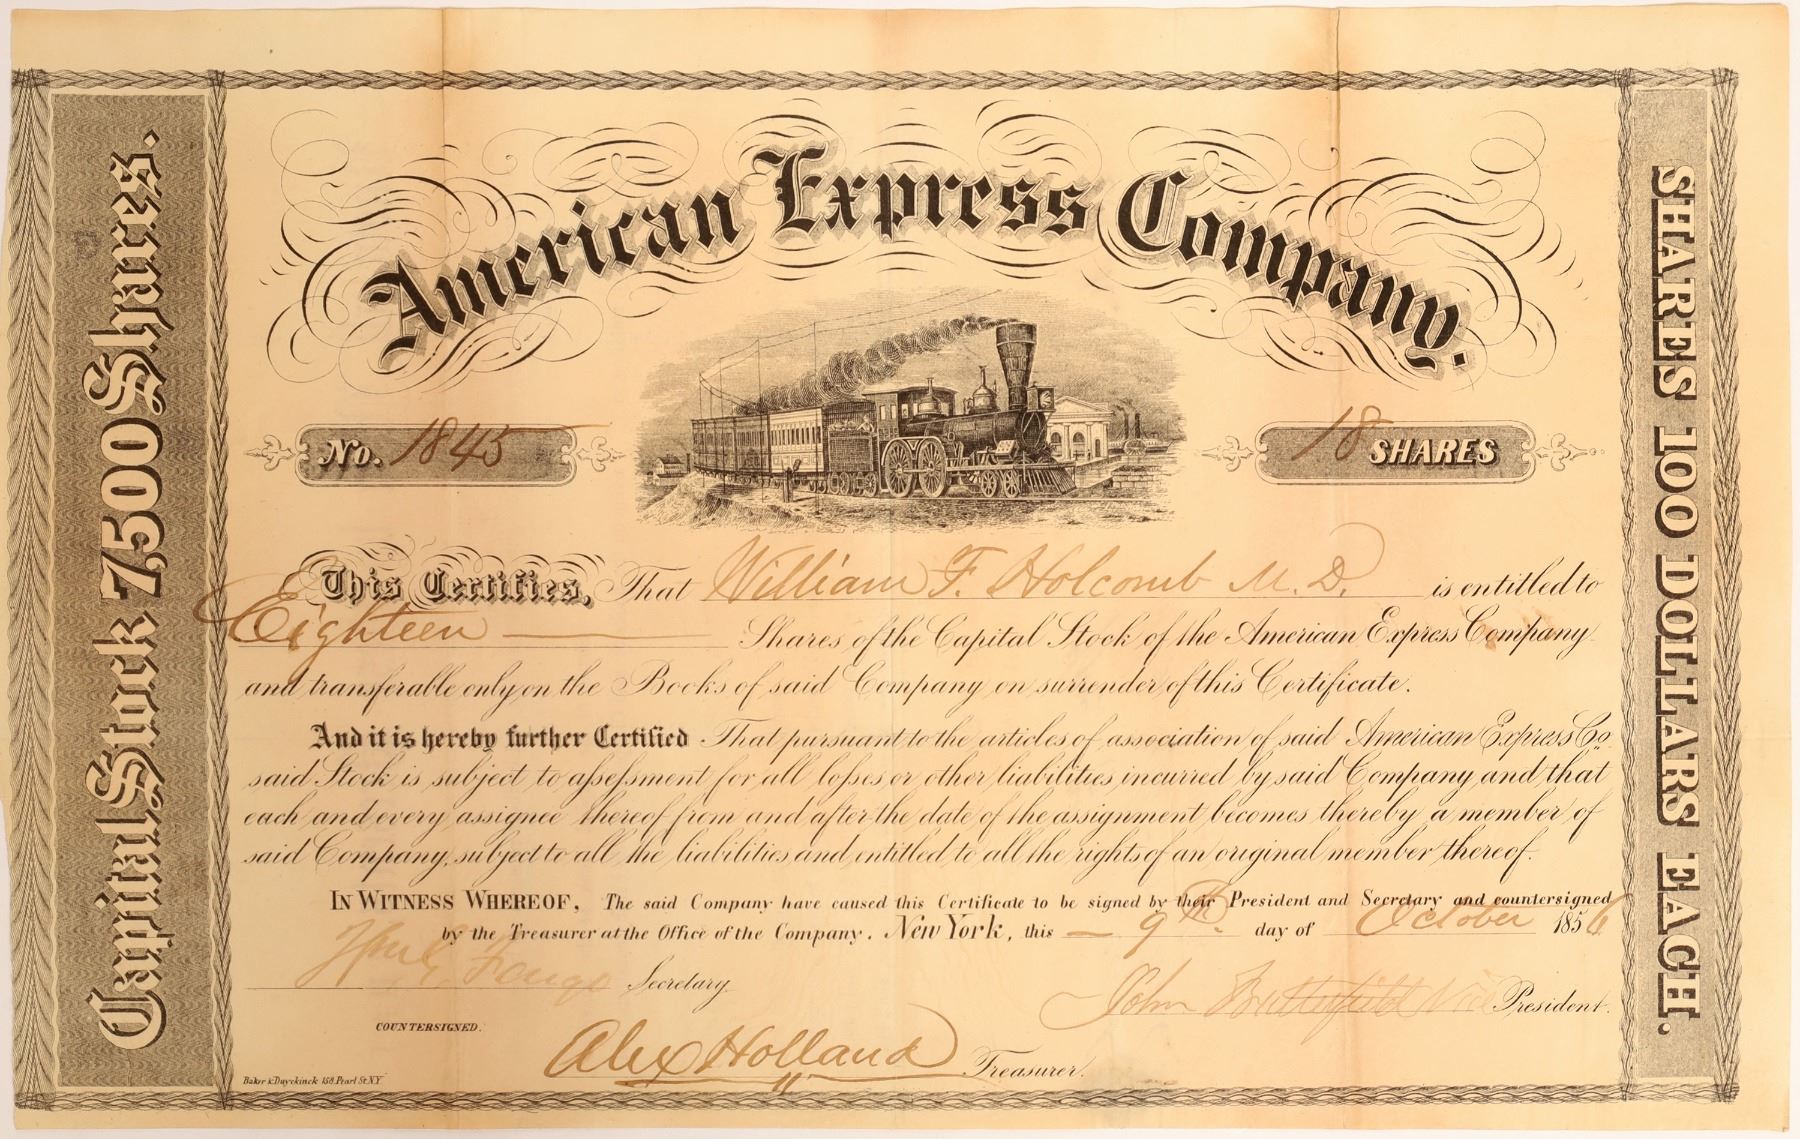 American Express Company.
Capital Stock 7,500 Shares.
SHARES 100 DOLLARS EACH.
No. 1845
18 SHARES
This Certifies, That William F. Holcomb M. D. is entitled to
Eighteen Shares of the Capital Stock of the American Express Company
and transferable only on the Books of said Company on surrender of this Certificate.
And it is hereby further Certified That pursuant to the articles of association of said American Express Co.
said Stock is subject to assessment for all losses or other liabilities incurred by said Company, and that
each and every assignee thereof from and after the date of the assignment becomes thereby a member of
said Company, subject to all the liabilities and entitled to all the rights of an original member thereof.
IN WITNESS WHEREOF, The said Company have caused this Certificate to be signed by their President and Secretary and countersigned
by the Treasurer at the Office of the Company. New York, this 9th. day of October 1856
Wm. G. Fargo Secretary
John Butterfield Vice President.
COUNTERSIGNED.
Alex Holland Treasurer.
Baker & Duyckinck 158, Pearl St. N.Y.